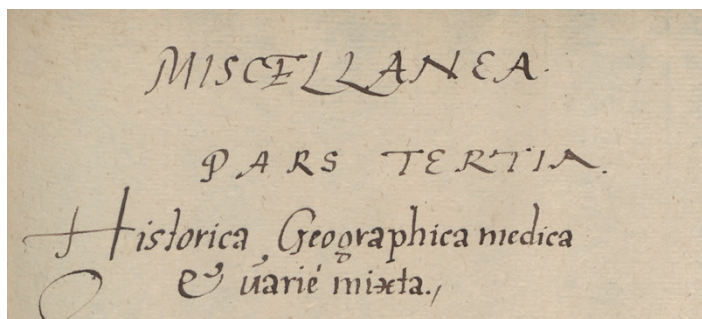 MISCELLANEA.
PARS TERTIA.
Historica, Geographica medica
& uarié mixta.,